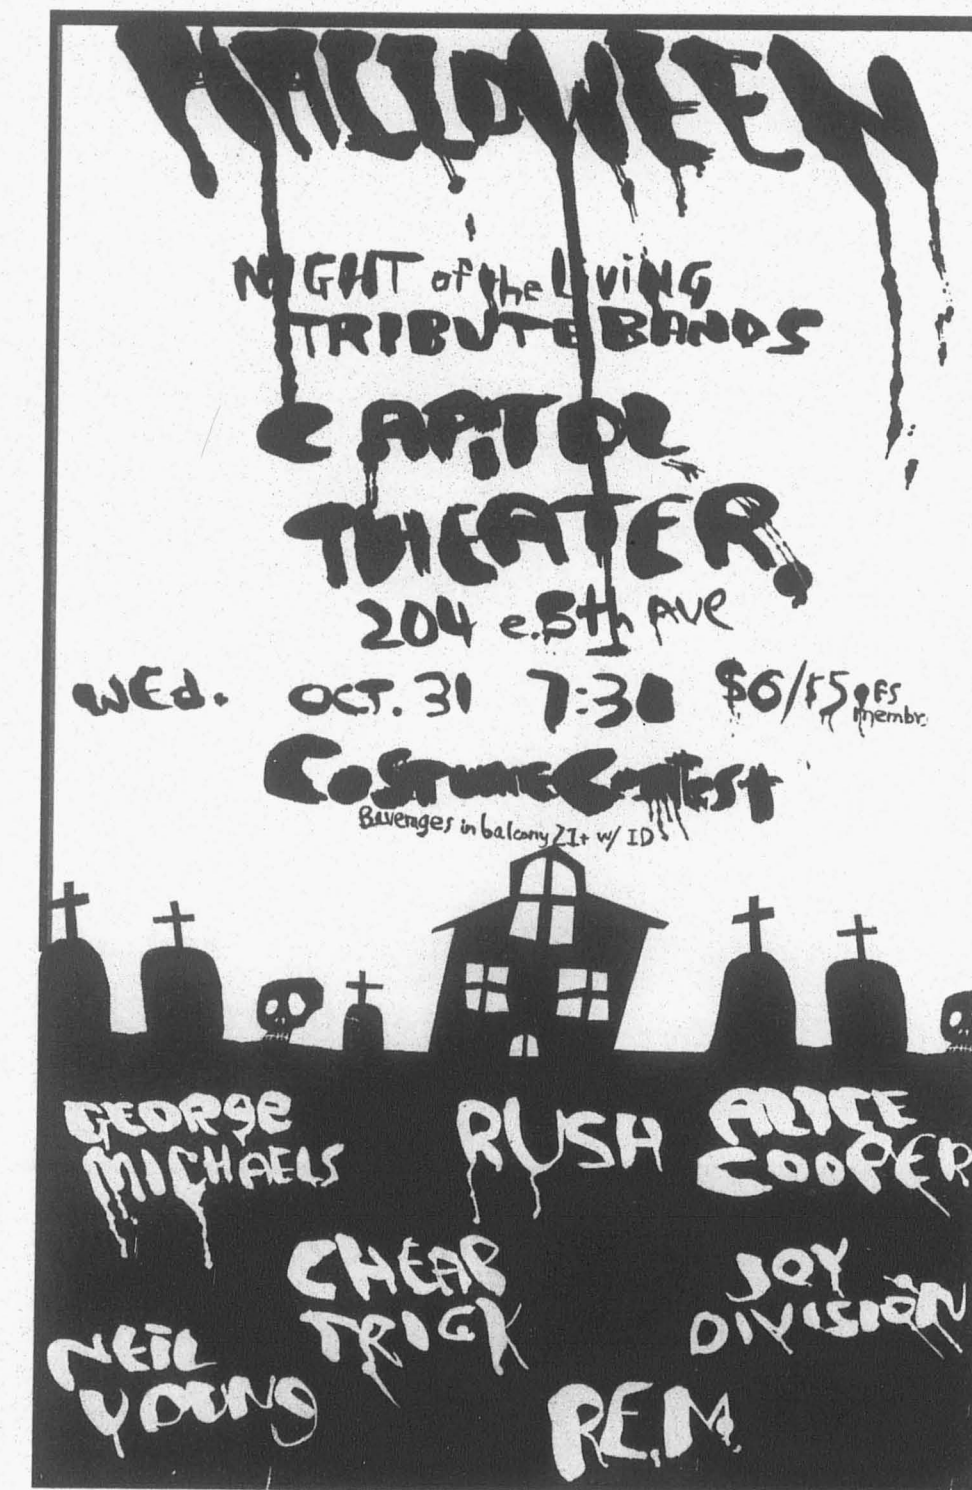 HALLOWEEN
NIGHT of the LiviNG
TRIBUTE BANDS
CAPiTOL
THEATER
204 e.5th AVe
WEd. OCT. 31 7:30 $6/$5 OFS membr.
CoSTUMe CoNTesT
Beverages in balcony 21+ w/ ID
GEORge
MICHAELS
RUSH
ALICE
COOPER
CHEAP
TRICK
JOY
DIVISION
NEiL
YOUNG
R.E.M.